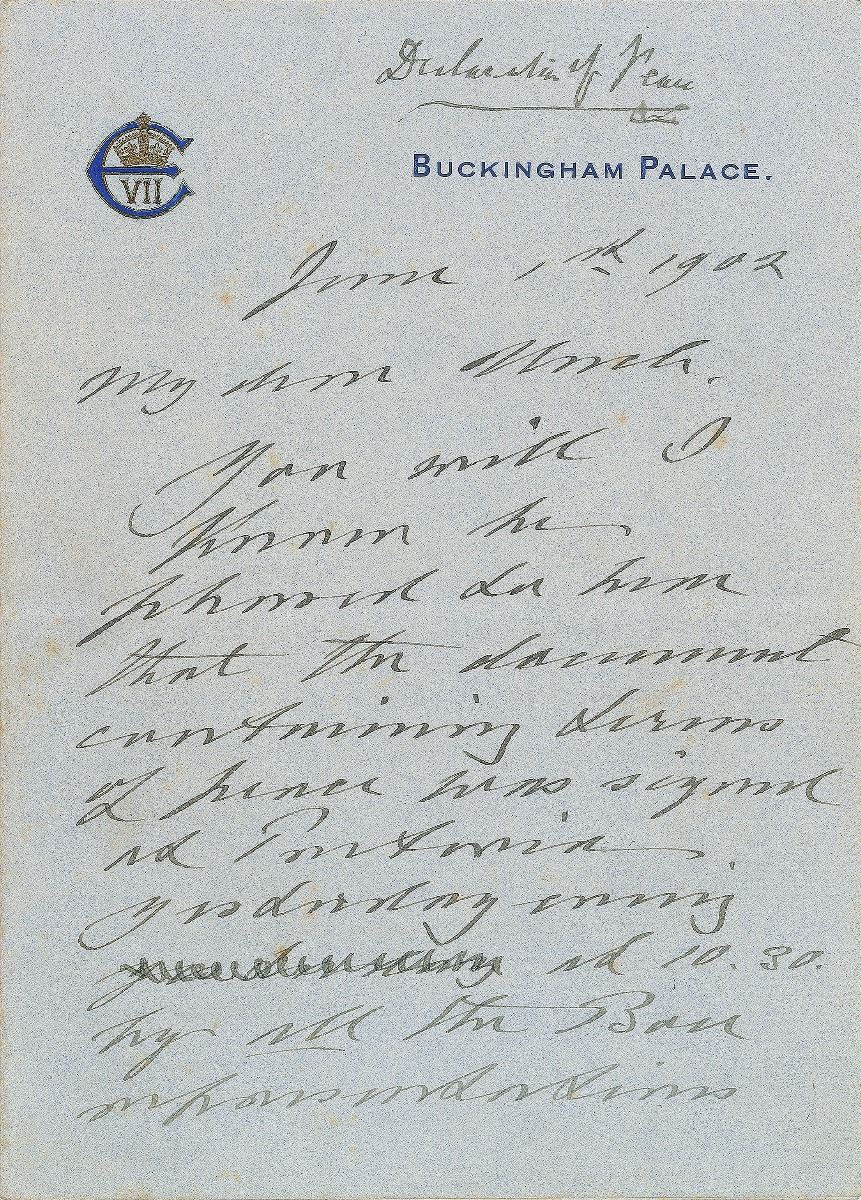 Declaration of Peace
E VII
BUCKINGHAM PALACE.
June 1st 1902
My dear
You will I
know be
pleased to hear
that the document
containing terms
of peace was signed
at Pretoria
yesterday evening
at 10.30.
by all the Boer
representations